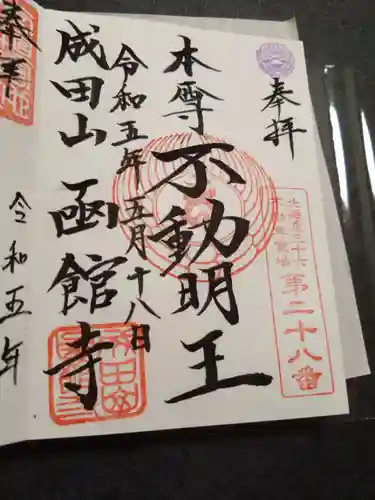 奉拝
北海道三十六
不動尊霊場
第二十八番
本尊不動明王
令和五年五月十八日
成田山函館寺
奉拝
令和五年